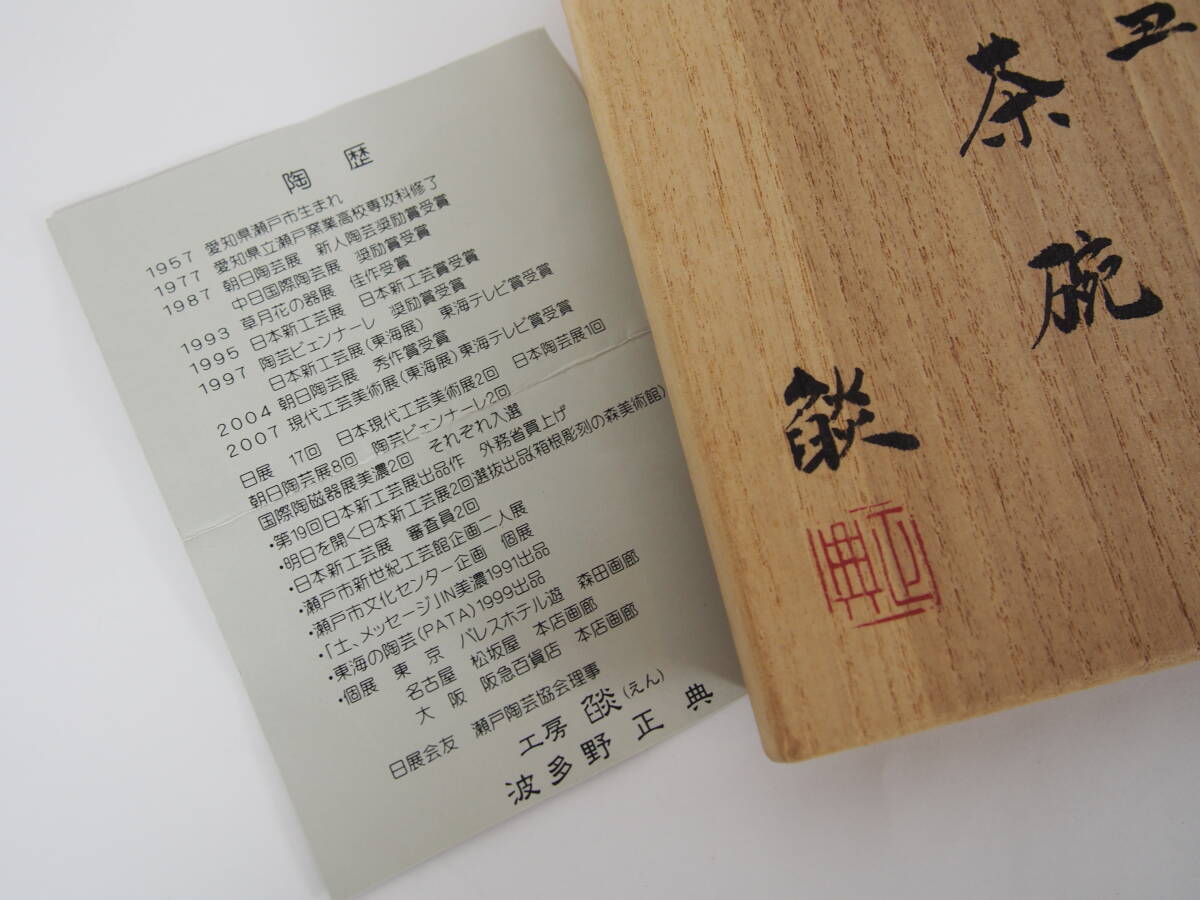 陶歴
1957 愛知県瀬戸市生まれ
1977 愛知県立瀬戸窯業高校専攻科修了
1987 朝日陶芸展 新人陶芸奨励賞受賞
中日国際陶芸展 奨励賞受賞
1993 草月花の器展 佳作受賞
1995 日本新工芸展 日本新工芸賞受賞
1997 陶芸ビェンナーレ 奨励賞受賞
日本新工芸展(東海展) 東海テレビ賞受賞
2004 朝日陶芸展 秀作賞受賞
2007 現代工芸美術展(東海展)東海テレビ賞受賞
日展 17回 日本現代工芸美術展2回 日本陶芸展1回
朝日陶芸展8回 陶芸ビェンナーレ2回
国際陶磁器展美濃2回 それぞれ入選
・第19回日本新工芸展出品作 外務省買上げ
・明日を開く日本新工芸展2回選抜出品(箱根彫刻の森美術館)
・日本新工芸展 審査員2回
・瀬戸市新世紀工芸館企画二人展
・瀬戸市文化センター企画 個展
・「土、メッセージ」IN美濃1991出品
・東海の陶芸(PATA)1999出品
・個展 東京 パレスホテル遊 森田画廊
名古屋 松坂屋 本店画廊
大阪 阪急百貨店 本店画廊
日展会友 瀬戸陶芸協会理事
工房 (えん)
波多野正典
茶碗
正典